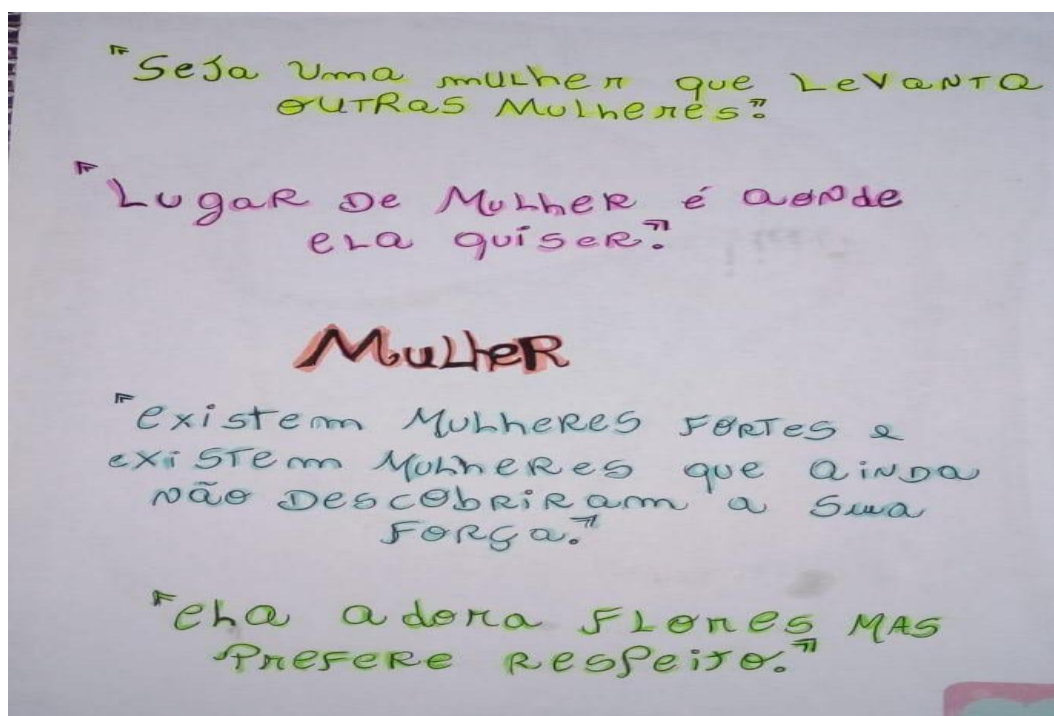 "Seja uma mulher que levanta
outras mulheres".
"Lugar de mulher é aonde
ela quiser".
Mulher
"existem mulheres fortes e
existem mulheres que ainda
não descobriram a sua
força."
"ela adora flores mas
prefere respeito."